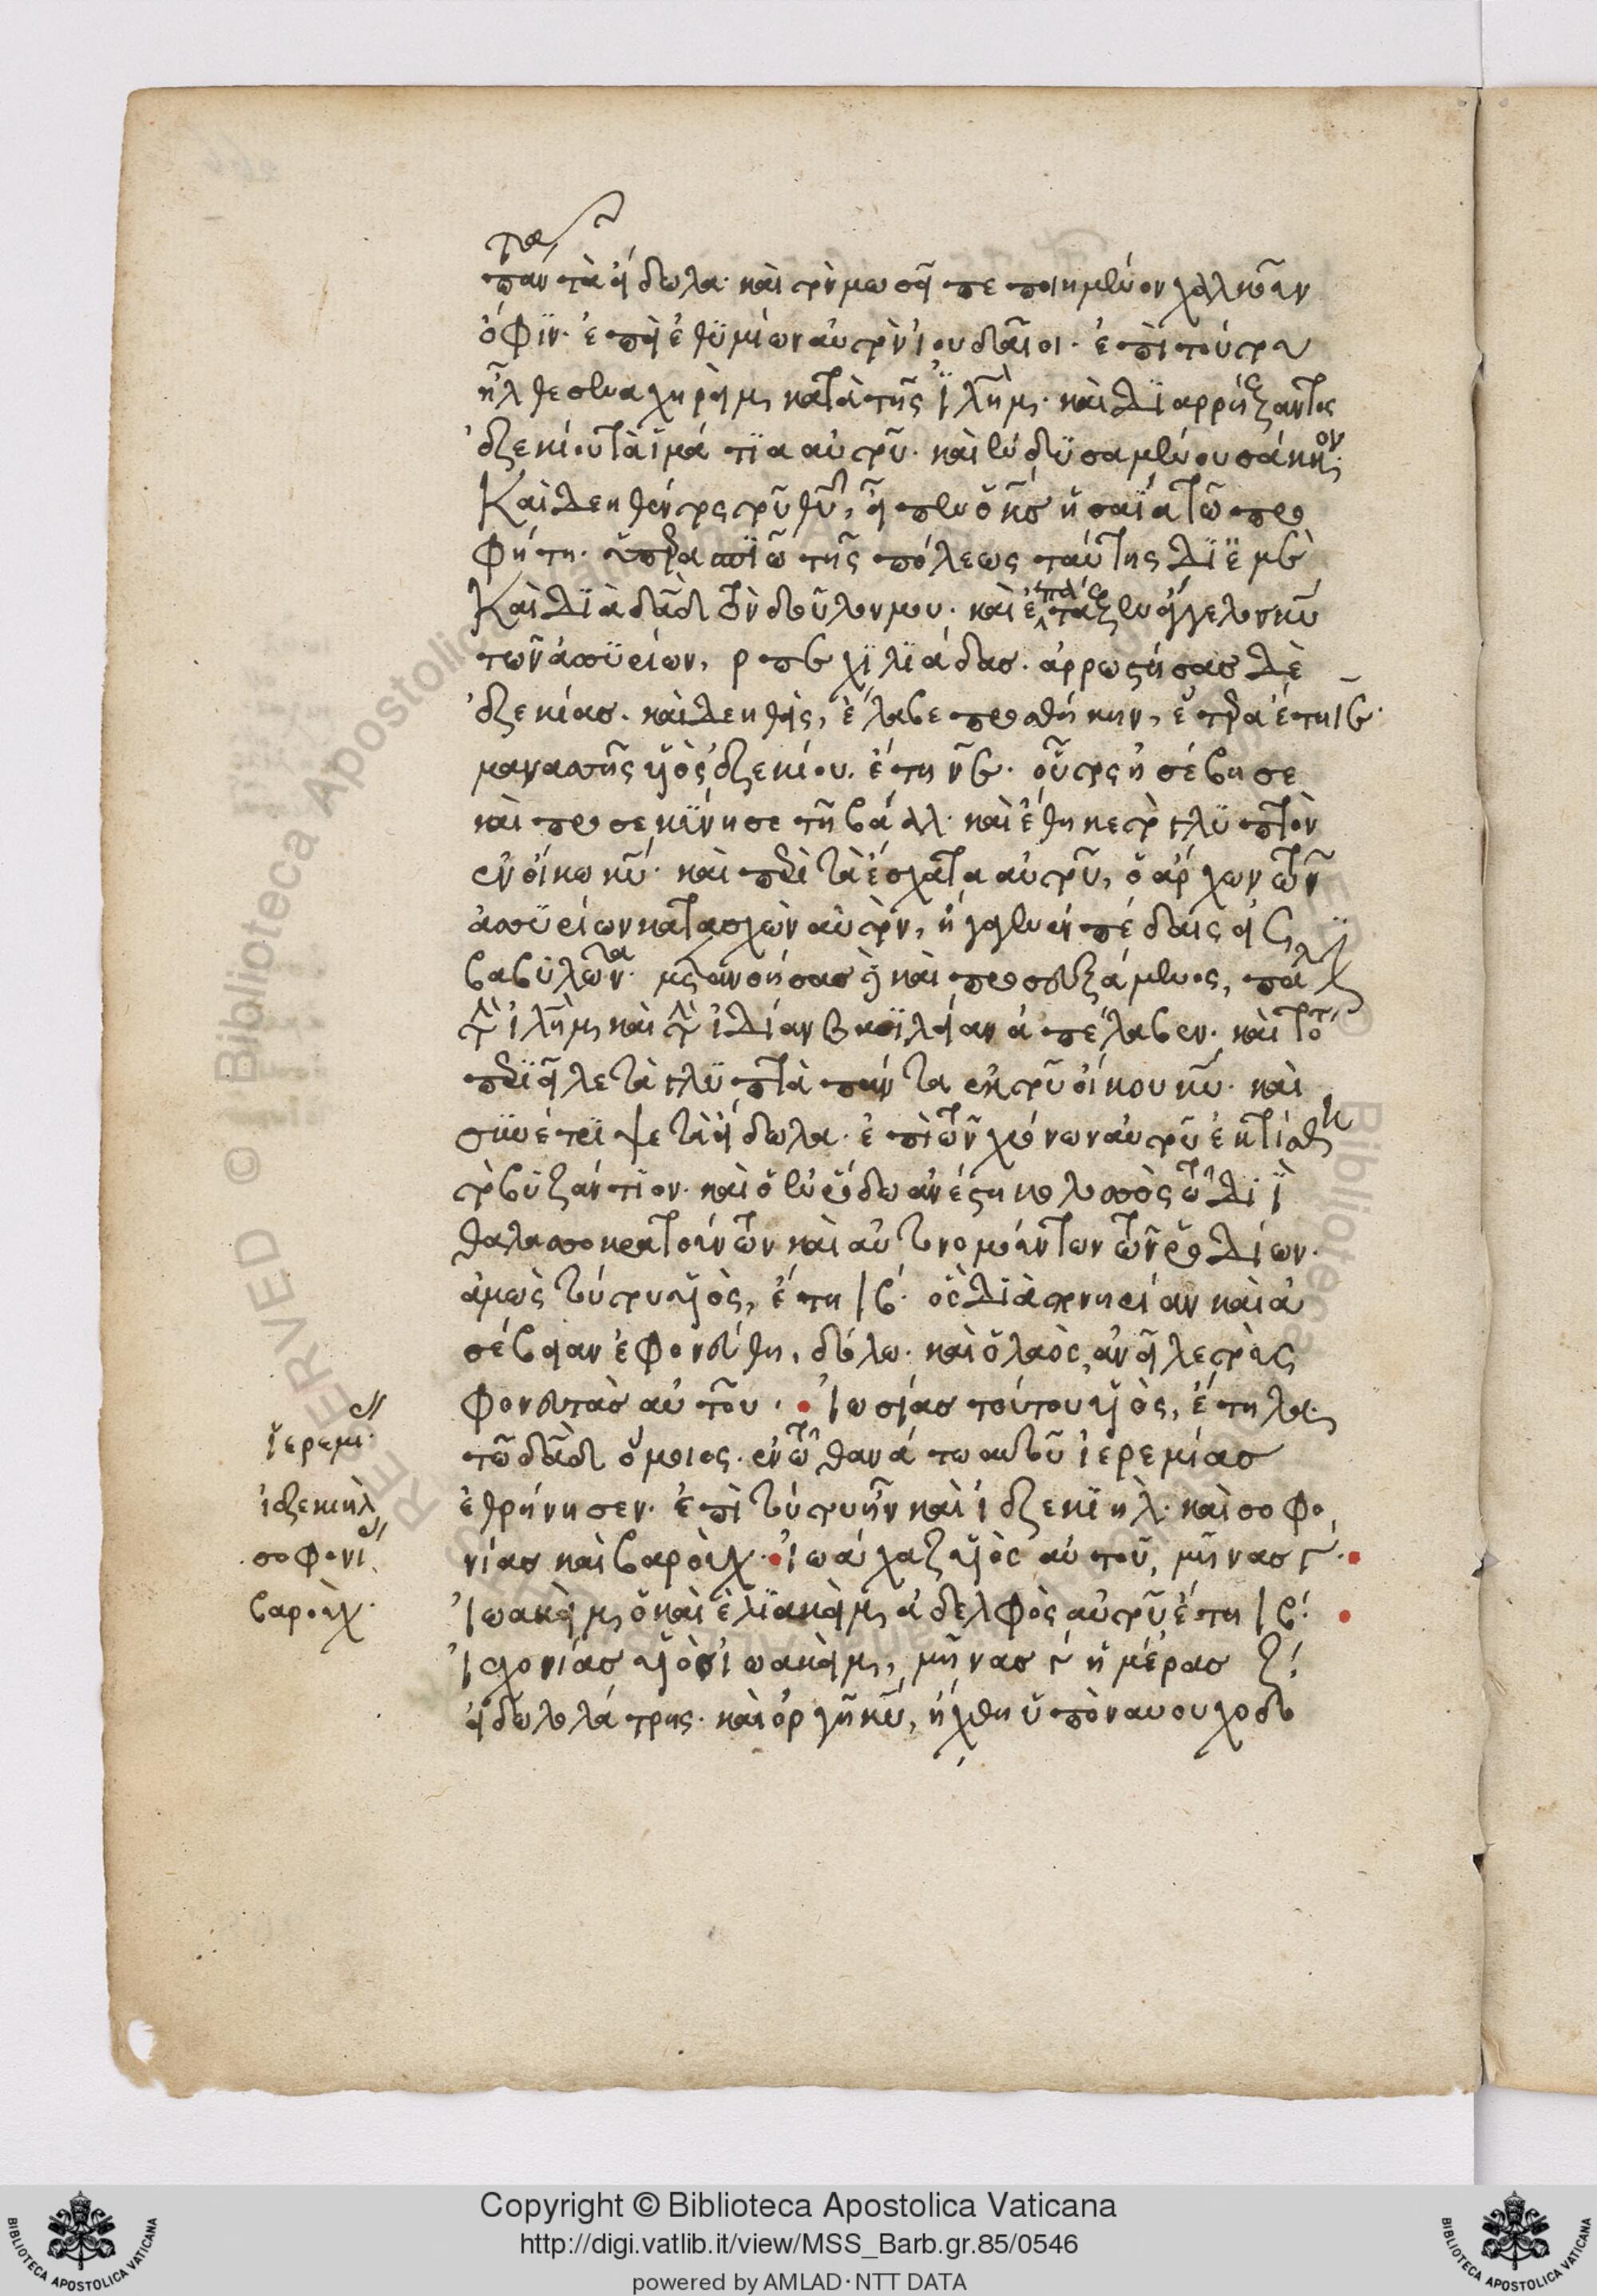 πάντα τὰ εἴδωλα· καὶ τὸν μωσεῖ πεποιημένον χαλκοῦν
ὄφιν· ἐπεὶ ἐθυμίων αὐτὸν ἰουδαῖοι· ἐπὶ τούτου
ἦλθε σεναχηρεὶμ κατὰ τῆς ἰλῆμ· καὶ διαρρήξαντος
ἐζεκίου τὰ ἱμάτια αὐτοῦ· καὶ ἐνδυσαμένου σάκκον·
Καὶ δεηθέντος τοῦ θυ, εἶπεν ὁ κς ἡσαΐα τῶ προ
φήτη· ὑπερασπιῶ τῆς πόλεως ταύτης δι' ἐμὲ
Καὶ διὰ δαδ τὸν δοῦλον μου· καὶ ἐπάταξεν ἄγγελος κυ
τῶν ἀσσυρίων, ρπε χιλιάδας. ἀρρωστήσας δὲ
ἐζεκίας· καὶ δεηθεὶς, ἔλαβε προσθήκην, ἕτερα ἔτη ιε·
μανασσῆς υἱὸς ἐζεκίου. ἔτη νε· οὗτος ἠσέβησε
καὶ προσεκύνησε τῆ βάαλ· καὶ ἔθηκε τὸ γλυπτὸν
ἐν οἴκω κυ· καὶ περὶ τὰ ἔσχατα αὐτοῦ, ὁ ἄρχων τῶν
ἀσσυρίων κατασχὼν αὐτὸν, ἤγαγεν ἐν πέδαις εἰς
βαβυλῶνα· μετανοήσας δὲ καὶ προσευξάμενος, πάλιν
τὴν ἰλῆμ καὶ τὴν ἰδίαν βασιλείαν ἀπέλαβεν· καὶ τότε
περιεῖλε τὰ γλυπτὰ πάντα ἐκ τοῦ οἴκου κυ· καὶ
συνέτριψε τὰ εἴδωλα· ἐπὶ τῶν χρόνων αὐτοῦ ἐκτίσθη
τὸ βυζάντιον· καὶ ὁ ἐν ῥόδω ἀνέστη κολοσσὸς τῶ διῒ
θαλασσοκρατούντων καὶ αὐτονομούντων τῶν ῥοδίων·
ἀμὼς τούτου υἱὸς, ἔτη ιβ· ὃς διὰ πονηρίαν καὶ ἀ
σέβειαν ἐφονεύθη, δόλω· καὶ ὁ λαὸς ἀνεῖλε τοὺς
φονευτὰς αὐτοῦ· Ἰωσίας τούτου υἱὸς, ἔτη λα
τῶ δαδ ὅμοιος· ἐν τῶ θανάτω αὐτοῦ ἱερεμίας
ἐθρήνησεν· ἐπὶ τούτου ἦν καὶ ἰεζεκιὴλ· καὶ σοφο
νίας καὶ βαροὺχ· Ἰωάχαζ υἱὸς αὐτοῦ, μῆνας γ·
Ἰωακεὶμ ὁ καὶ ἐλιακεὶμ ἀδελφὸς αὐτοῦ ἔτη ιβ·
Ἰεχονίας υἱὸς ἰωακεὶμ, μῆνας γ ἡμέρας ζ·
εἰδωλολάτρης· καὶ ὀργῆ κυ, ἤχθη ὑπὸ ναουχοδο
ἱερεμι
ἰεζεκιὴλ
σοφονι
βαροὺχ·
Copyright © Biblioteca Apostolica Vaticana
http://digi.vatlib.it/view/MSS_Barb.gr.85/0546
powered by AMLAD·NTT DATA